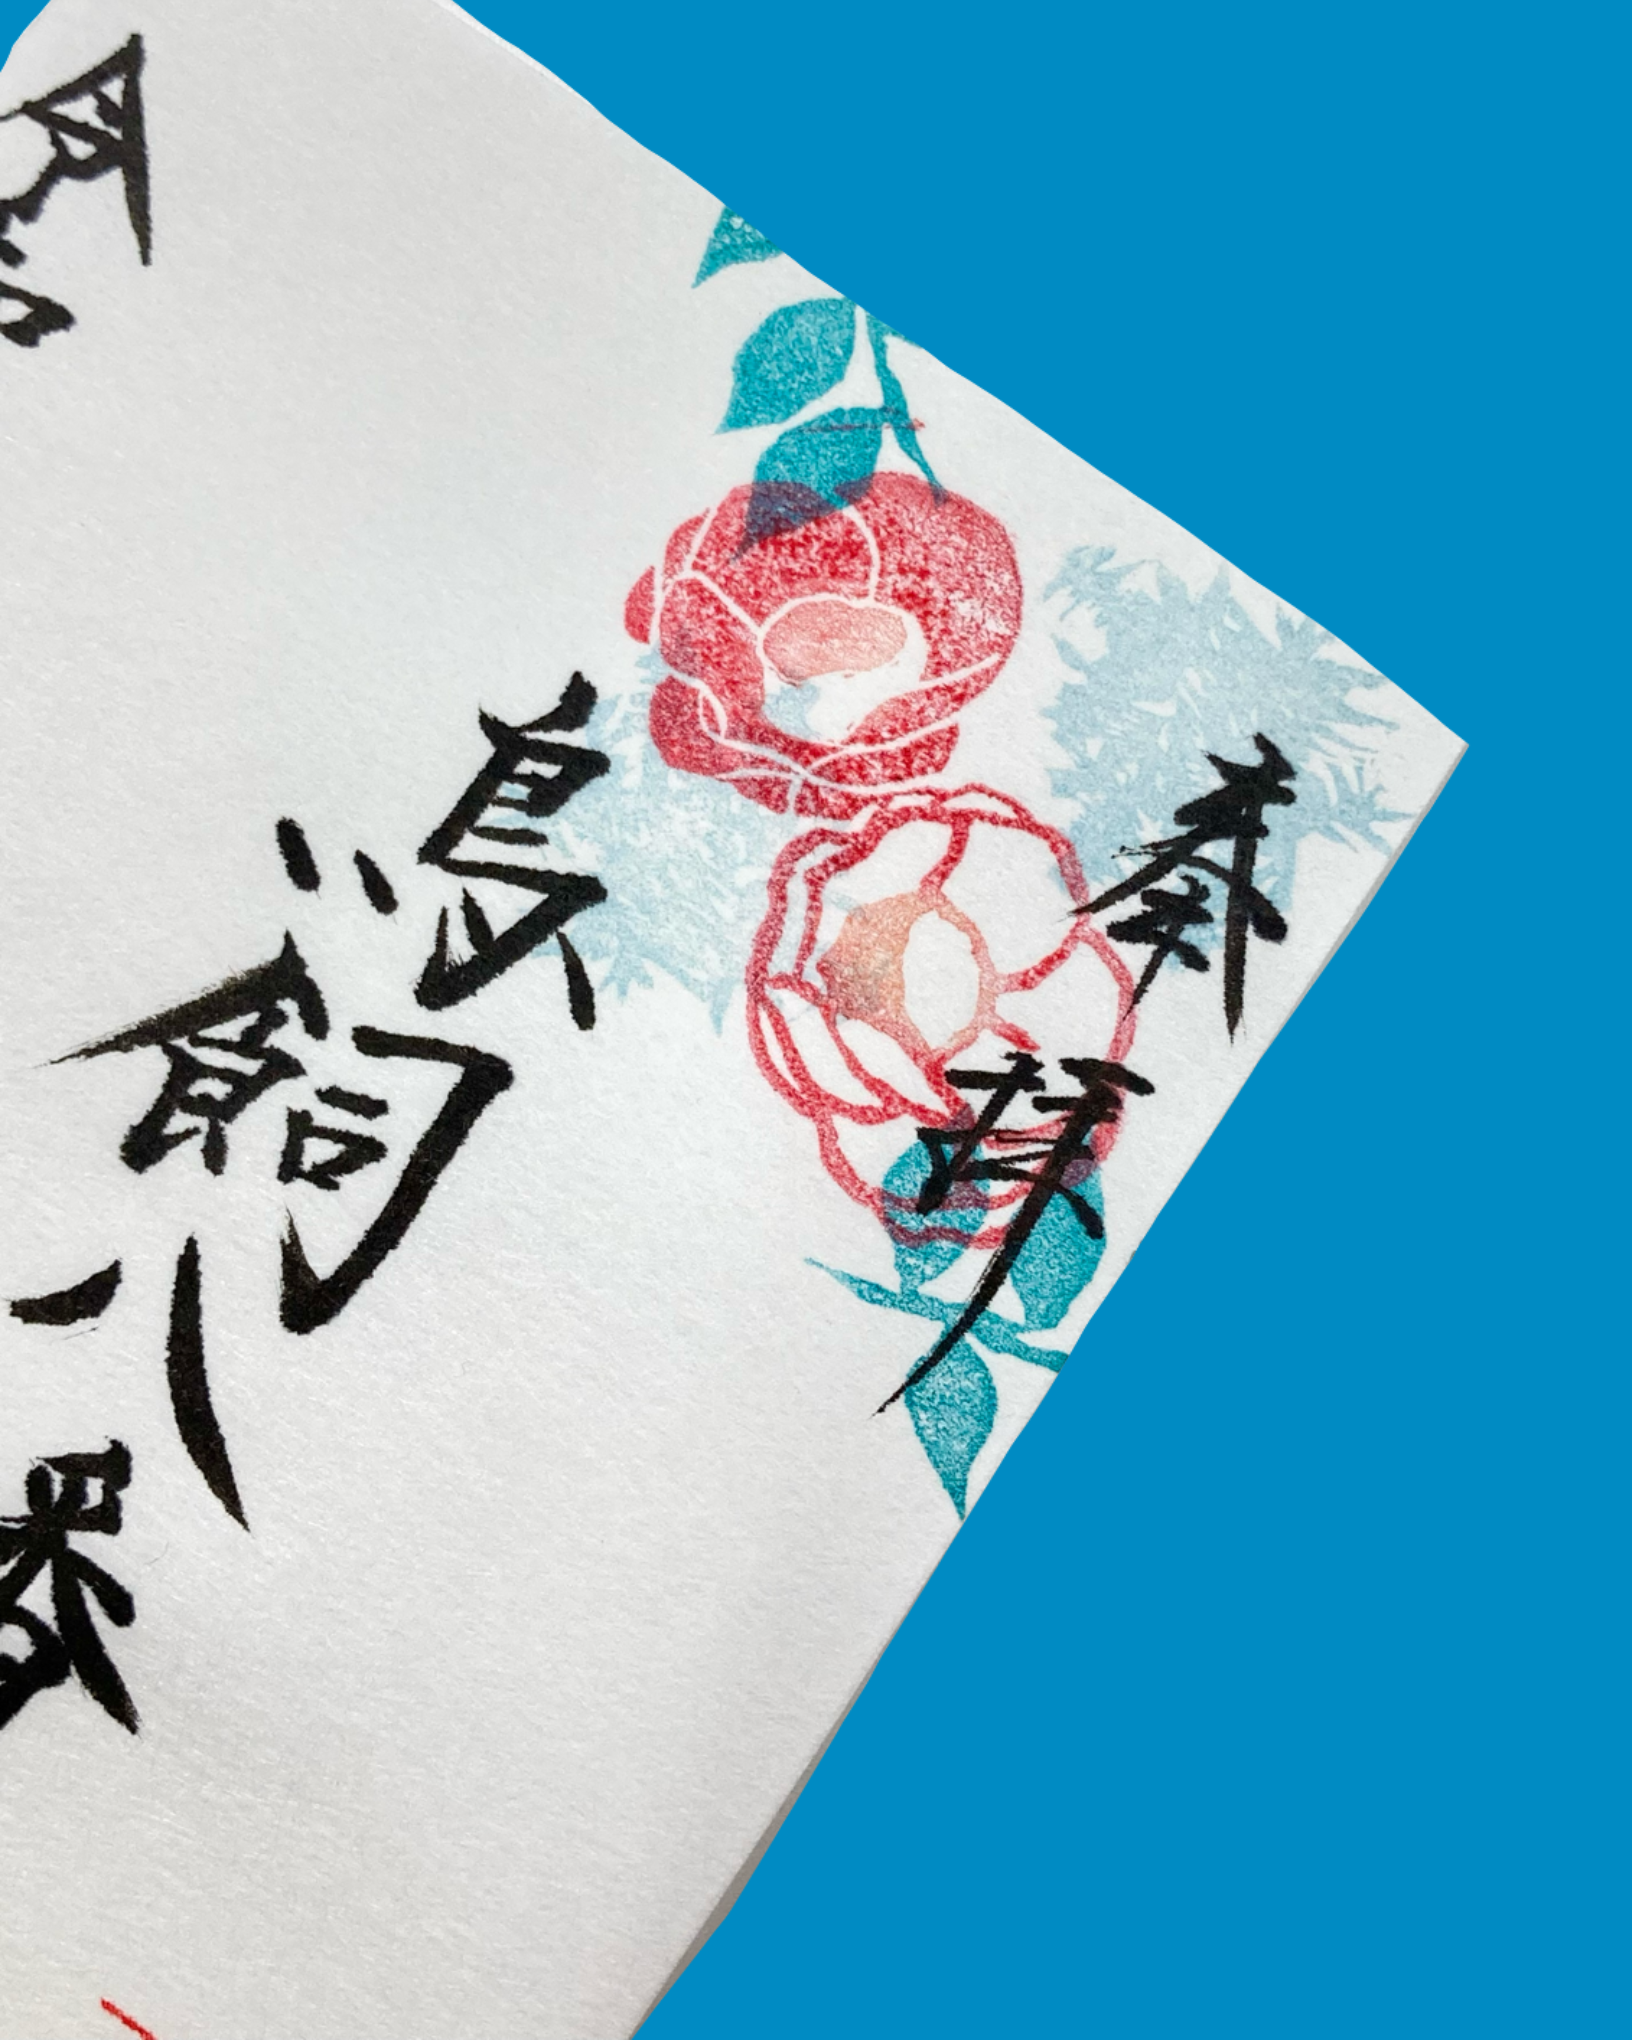 奉拝
鳥飼八幡